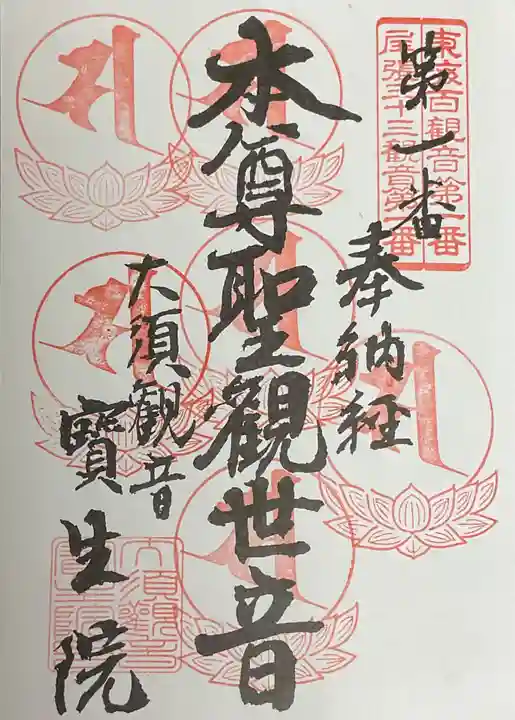 東海百観音第一番
尾張三十三観音第一番
第一番
奉納経
本尊聖観世音
大須観音
寶生院
大須観音
寶生院